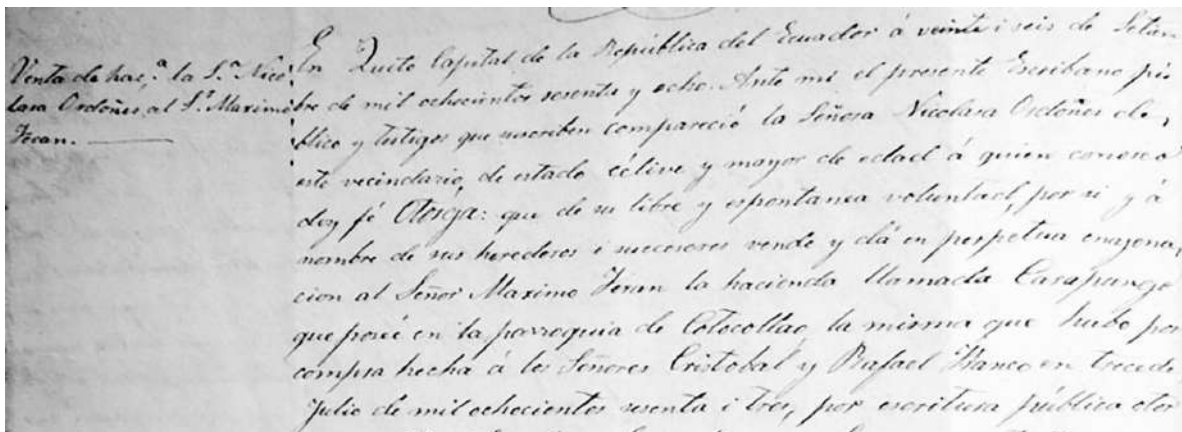 Venta de hac.ª la S.ª Nico
lasa Ordoñes, al S.r Maximo
Teran.
En Quito Capital de la República del Ecuador á veinte i seis de Setiem
bre de mil ochocientos sesenta y ocho. Ante mi el presente Escribano pú
blico y testigos que suscriben compareció la Señora Nicolasa Ordoñes de
este vecindario, de estado célive y mayor de edad á quien conosco
doy fé Otorga: que de su libre y espontanea voluntad, por si y á
nombre de sus herederos i succesores vende y dá en perpetua enagena
cion al Señor Maximo Teran la hacienda llamada Carapungo
que poseé en la parroquia de Cotocollao, la misma que hubo por
compra hecha á los Señores Cristobal y Rafael en trece de
Julio de mil ochocientos sesenta i tres, por escritura pública otor